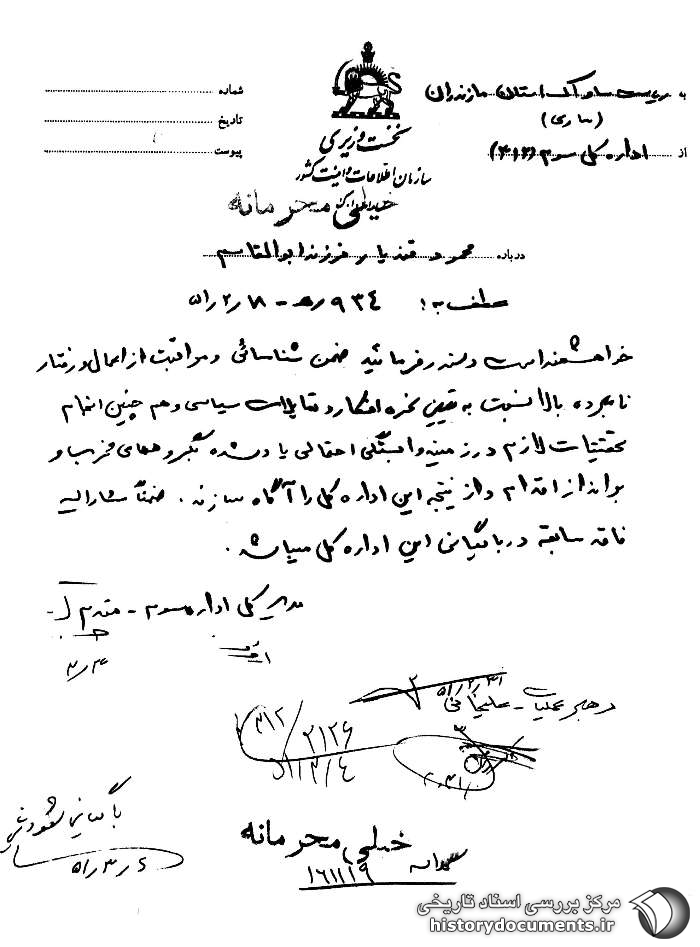 به ریاست ساواک استان مازندران
(ساری)
از اداره کل سوم (۳۱۲)
نخست وزیری
سازمان اطلاعات و امنیت کشور
خیلی محرمانه
شماره
تاریخ
پیوست
درباره محمود قندیار فرزند ابوالقاسم
عطف به: ۹۳۴ ره‍ - ۵۱/۲/۸
خواهشمند است دستور فرمائید ضمن شناسائی و مراقبت از اعمال و رفتار
نامبرده بالا نسبت به تعیین نحوه افکار و تمایلات سیاسی و هم چنین انجام
تحقیقات لازم در زمینه وابستگی احتمالی یاد شده بگروههای مخرب و
برانداز اقدام و از نتیجه این اداره کل را آگاه سازند. ضمناً مشارالیه
فاقد سابقه در بایگانی این اداره کل میباشد.
مدیر کل اداره سوم - مقدم
۳/۴
رهبر عملیات -
۵۱/۲/۳۱
۳۱۲/۲۱۲۶
۵۱/۳/۴
بایگانی شود
۵۱/۳/۶
خیلی محرمانه
۱۶۱۱۱۹
مرکز بررسی اسناد تاریخی
historydocuments.ir